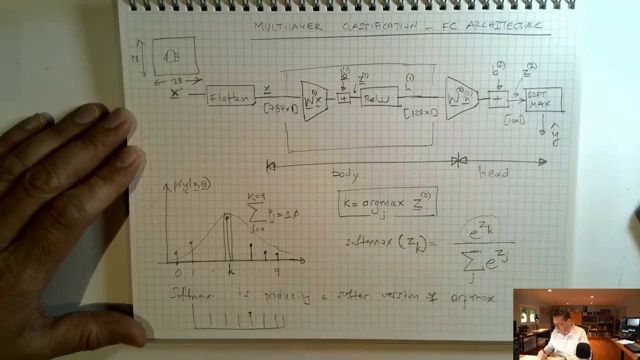 MULTILAYER CLASSIFICATION - FC ARCHITECTURE
28
28
x'
Flatten
x
[784x1]
W⁽¹⁾x
b⁽¹⁾
+
z⁽¹⁾
ReLU
h⁽¹⁾
[128x1]
W⁽²⁾h⁽¹⁾
b⁽²⁾
+
z⁽²⁾
[10x1]
SOFT
MAX
ŷ
body
head
P(y|x,θ)
k=9
Σ Pj = 1.0
j=0
k = argmax z⁽²⁾
j
softmax (zk) = e^zk / Σj e^zj
0 1 k 9
Softmax is producing a softer version of argmax